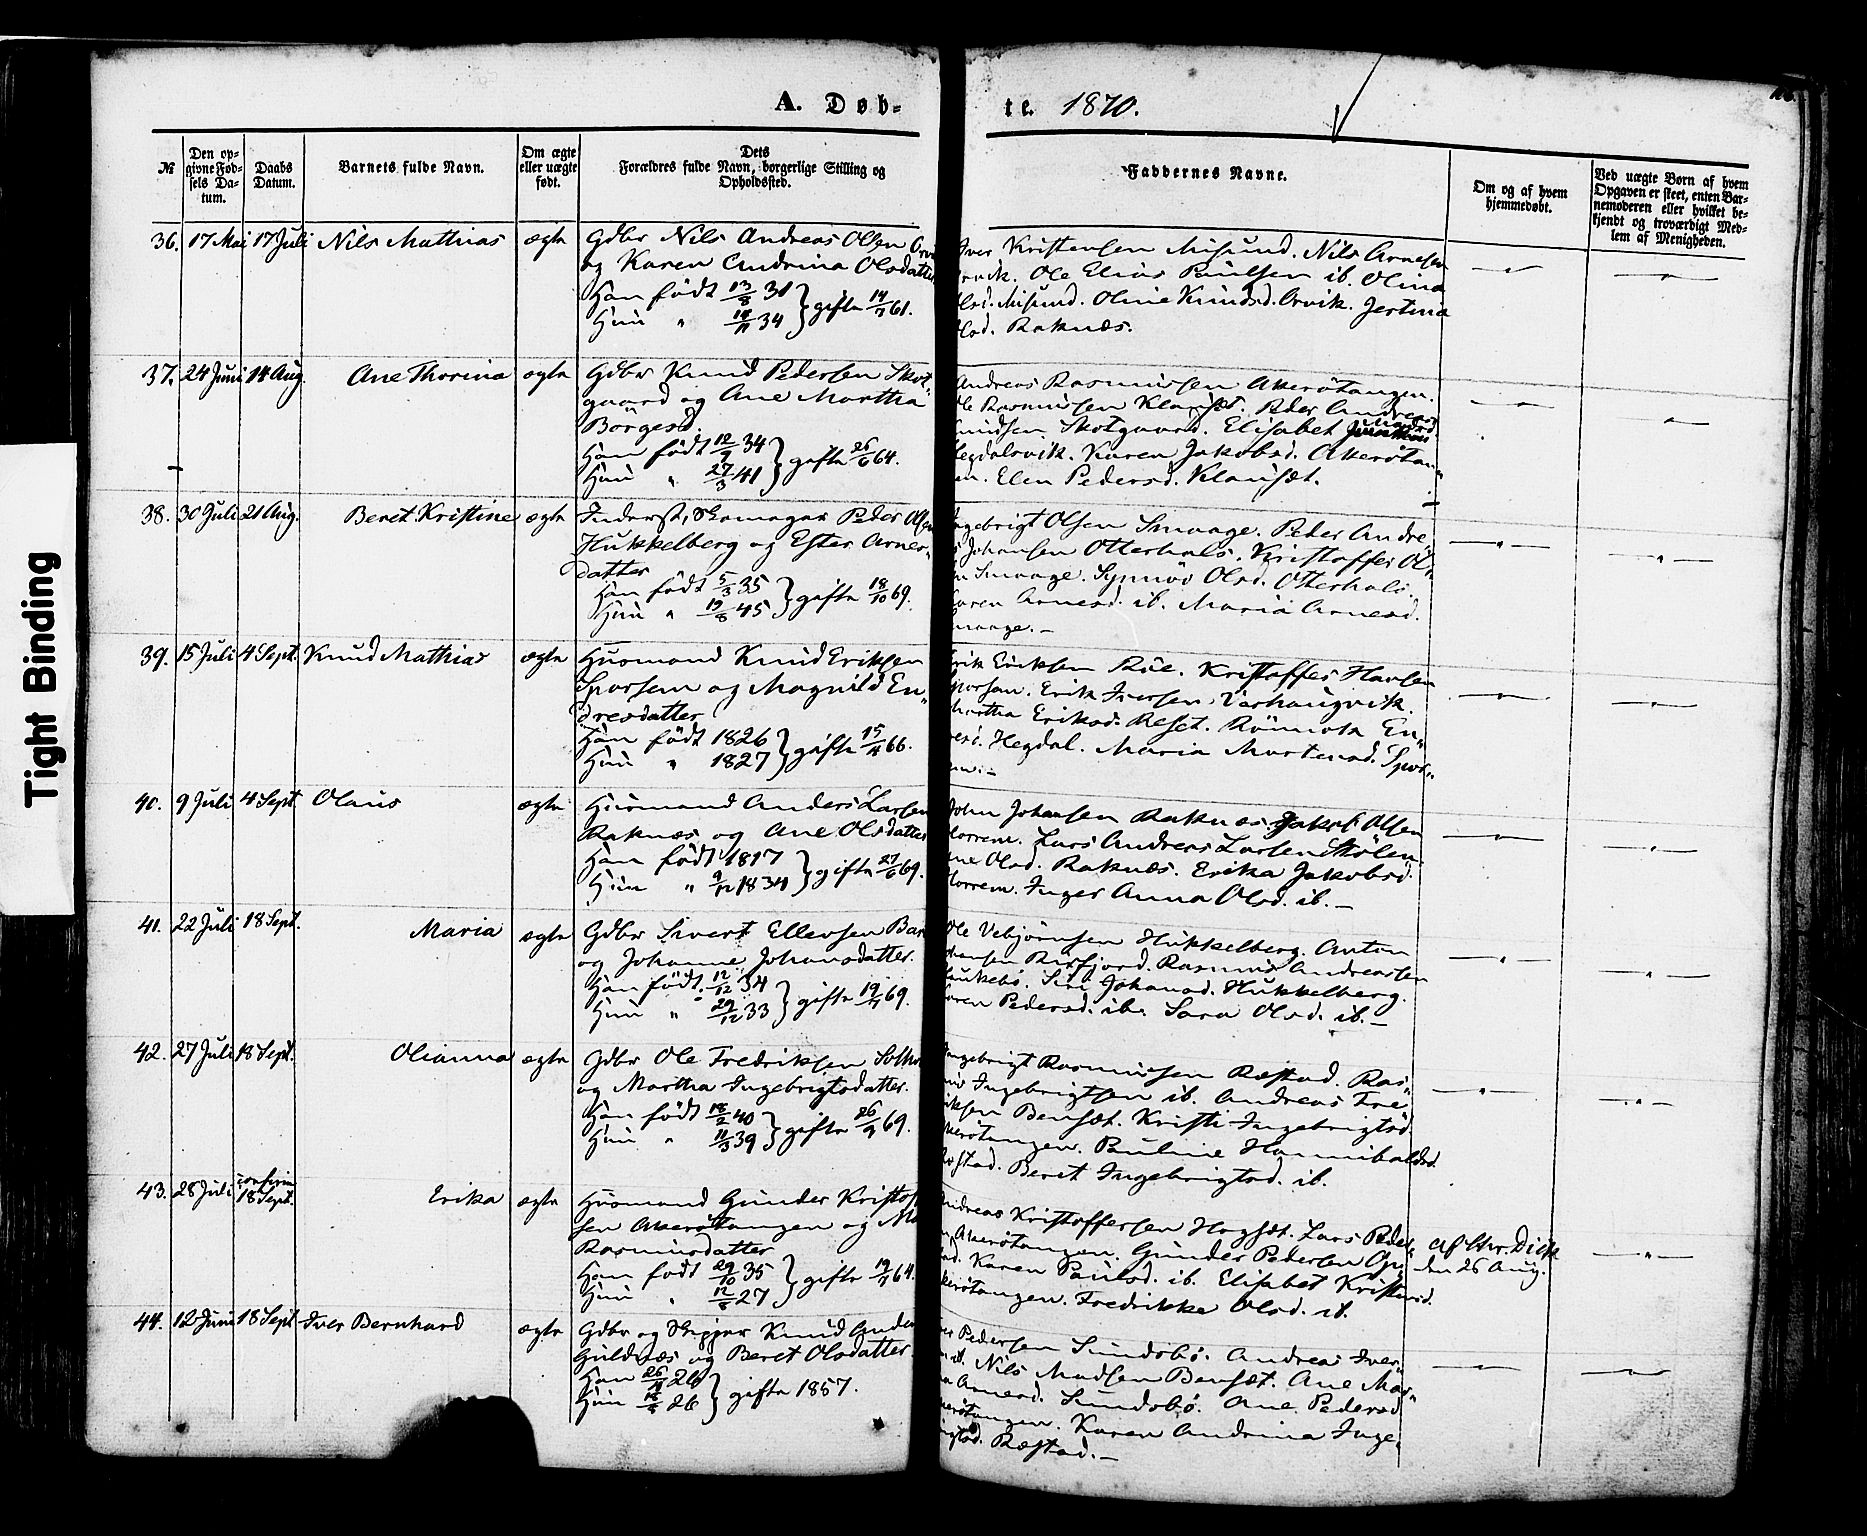 A. Døb-
te. 1870.
№
Den opgivne Fødsels Datum.
Daabs Datum.
Barnets fulde Navn.
Om ægte eller uægte født.
Dets Forældres fulde Navn, borgerlige Stilling og Opholdssted.
Faddernes Navne.
Om og af hvem hjemmedøbt.
Ved uægte Børn af hvem Opgaven er skeet, enten Barnemoderen eller hvilket bekjendt og troværdigt Medlem af Menigheden.
36. 17 Mai 17 Juli Nils Mathias ægte
Gdbr Nils Andreas Olsen
og Karen Andrina Olsdatter
Han født 13/8 31
Hun " 34 } gifte 61.
Iver Kristensen Misund. Nils Arnesen
Orvik. Ole Elias Paulsen ib. Olina
Olsd. Misund. Oline Knudsd. Orvik. Jertina
Olsd. Raknæs.
37. 24 Juni 14 Aug. Ane Thorina ægte
Gdbr Knud Pedersen Skot-
gaard og Ane Martha
Börgesd.
Han født 12/9 34
Hun " 27/3 41 } gifte 26/6 64.
Andreas Rasmussen Akerötangen.
Ole Rasmussen Klauset. Peder Andreas
Knudsen Skotgaard. Elisabet
Hegdalsvik. Karen Jakobsd. Akerötan-
en. Elen Pedersd. Klauset.
38. 30 Juli 21 Aug. Beret Kristine ægte
Inderst, Skomager Peder Olsen
Hukkelberg og Ester Arnes-
datter
Han født 5/3 35
Hun " 19/8 45 } gifte 18/10 69.
Ingebrigt Olsen Smaage. Peder Andre-
s Johansen Otterhals. Kristoffer Ol-
n Smaage. Synnöv Olsd. Otterhals.
Karen Arnesd. ib. Maria Arnesd.
Smaage.
39. 15 Juli 4 Sept. Knud Mathias ægte
Husmand Knud Eriksen
Sporsem og Magnild En-
dresdatter
Han født 1826
Hun " 1827 } gifte 15/4 66.
Erik Eriksen Rue. Kristoffer Hansen
Sporsem. Erik Iversen Varhaugvik.
Martha Eriksd. Reset. Römota En-
resd. Hegdal. Maria Martensd. Spor-
em.
40. 9 Juli 4 Sept. Olaus ægte
Husmand Anders Larsen
Raknæs og Ane Olsdatter
Han født 1817
Hun " 9/12 1834 } gifte 27/6 69.
John Johansen Raknæs. Jakob Olsen
Horrem. Lars Andreas Larsen Stölen.
Ane Olsd. Raknæs. Erika Jakobsd.
Horrem. Inger Anna Olsd. ib.
41. 22 Juli 18 Sept. Maria ægte
Gdbr Sivert Ellevsen
og Johanne Johansdatter.
Han født 12/12 34
Hun " 29/12 33 } gifte 19/7 69.
Ole Vebjörnsen Hukkelberg. Anton
Johansen Risfjord. Rasmus Andreassen
Siri Johansd. Hukkelberg.
Karen Pedersd. ib. Sara Olsd. ib.
42. 27 Juli 18 Sept. Olianna ægte
Gdbr Ole Fredriksen
og Martha Ingebrigtsdatter.
Han født 18/2 40
Hun " 11/3 39 } gifte 26/9 69.
Ingebrigt Rasmussen Ræstad. Ras-
mus Ingebrigtsen ib. Andreas Fre-
riksen Bensæt. Kristi Ingebrigtsd.
Akerötangen. Pauline Hannibalsd.
Ræstad. Beret Ingebrigtsd. ib.
43. 28 Juli confirm 18 Sept. Erika ægte
Husmand Gunder Kristof-
sen Akerötangen og
Rasmusdatter
Han født 29/10 35
Hun " 12/8 27 } gifte 19/7 64.
Andreas Kristoffersen Hogset. Lars Peder-
n Akerötangen. Gunder Pedersen
Karen Paulsd. ib. Elisabet Kristensd.
Akerötangen. Fredrikke Olsd. ib.
af Chr. Dick
den 26 Aug.
44. 12 Juni 18 Sept Iver Bernhard ægte
Gdbr og Skipper Knud
Guldnæs og Beret Olsdatter.
Han 26
Hun 26 } gifte 1857.
Pedersen Sundsbö. Andreas Iver-
n ib. Nils Madsen Bensæt. Ane Mar-
Arnesd. Sundsbö. Ane Pedersd
Akerötangen. Karen Andrina Inge-
rigtsd. Ræstad.
Tight Binding